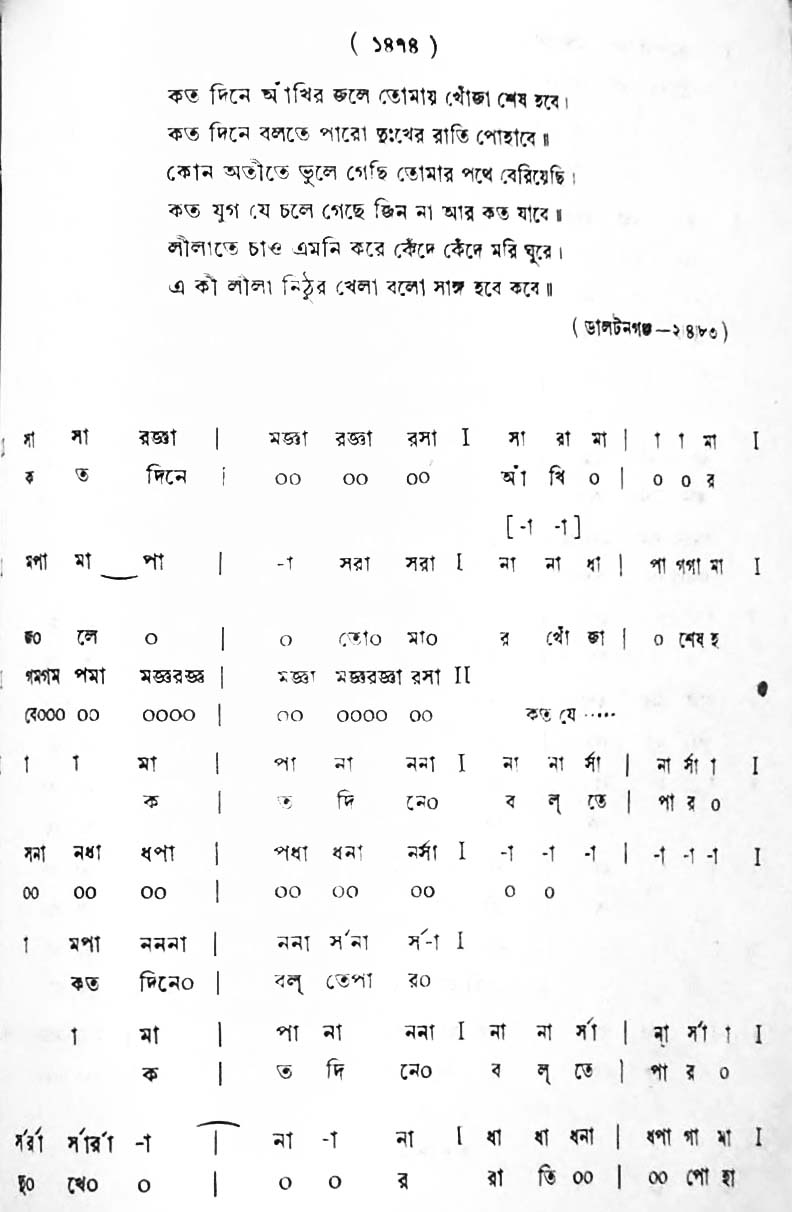 ( ১৪৭৪ )
কত দিনে আঁখির জলে তোমায় খোঁজা শেষ হবে।
কত দিনে বলতে পারো দুঃখের রাতি পোহাবে॥
কোন অতীতে ভুলে গেছি তোমার পথে বেরিয়েছি।
কত যুগ যে চলে গেছে জিন না আর কত যাবে॥
লীলাতে চাও এমনি করে কেঁদে কেঁদে মরি ঘুরে।
এ কী লীলা নিঠুর খেলা বলো সাঙ্গ হবে কবে॥
( ডালটনগঞ্জ—২৪৮৩ )
সা সা রজ্ঞা | মজ্ঞা রজ্ঞা রসা I সা রা মা | া া মা I
ক ত দিনে | ০০ ০০ ০০ আঁ খি ০ | ০ ০ র
[ -া -া ]
মপা মা পা | -া সরা সরা I না না ধা | পা গগা মা I
জ০ লে ০ | ০ তো০ মা০ র খোঁ জা | ০ শেষ হ
গমগম পমা মজ্ঞরজ্ঞ | মজ্ঞা মজ্ঞরজ্ঞা রসা II
বে০০০ ০০ ০০০০ | ০০ ০০০০ ০০ কত যে ·····
া া মা | পা না ননা I না না র্সা | না র্সা া I
ক | ত দি নে০ ব ল্ তে | পা র ০
সনা নধা ধপা | পধা ধনা নর্সা I -া -া -া | -া -া -া I
০০ ০০ ০০ | ০০ ০০ ০০ ০ ০
া মপা নননা | ননা র্সনা র্স-া I
কত দিনে০ | বল্ তেপা র০
া মা | পা না ননা I না না র্সা | না র্সা া I
ক | ত দি নে০ ব ল্ তে | পা র ০
র্সর্রা র্সার্রা -া | না -া না I ধা ধা ধনা | ধপা গা মা I
দু০ খে০ ০ | ০ ০ র রা তি ০০ | ০০ পো হা